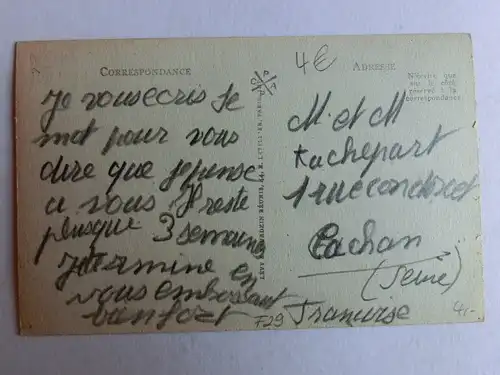 CORRESPONDANCE
Je vous ecris se
mot pour vous
dire que je pense
a vous Il reste
plusque 3 semaines
Je termine en
vous embrassant
bien fort
LÉVY ET NEURDEIN RÉUNIS, 44, R. LETELLIER, PARIS
4€
ADRESSE
N'écrire que
sur le côté
réservé à la
correspondance
M et M
Rachepart
1 rue condorcet
Cachan
(Seine)
Francise
F29
4,-